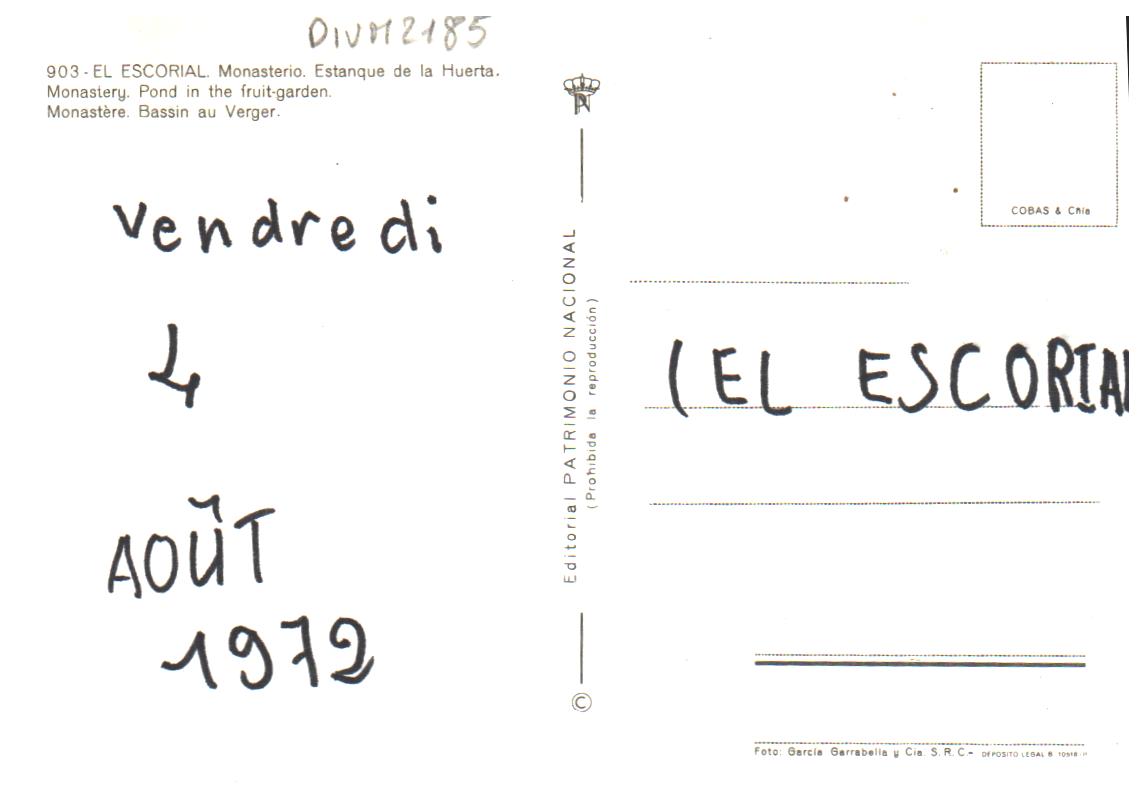 DIVM2185
903 - EL ESCORIAL. Monasterio. Estanque de la Huerta.
Monastery. Pond in the fruit-garden.
Monastère. Bassin au Verger.
Vendredi
4
AOÛT
1972
Editorial PATRIMONIO NACIONAL
(Prohibida la reproducción)
©
COBAS & Cnía
(EL ESCORIAL
Foto: García Garrabella y Cía. S. R. C.- DEPOSITO LEGAL B.